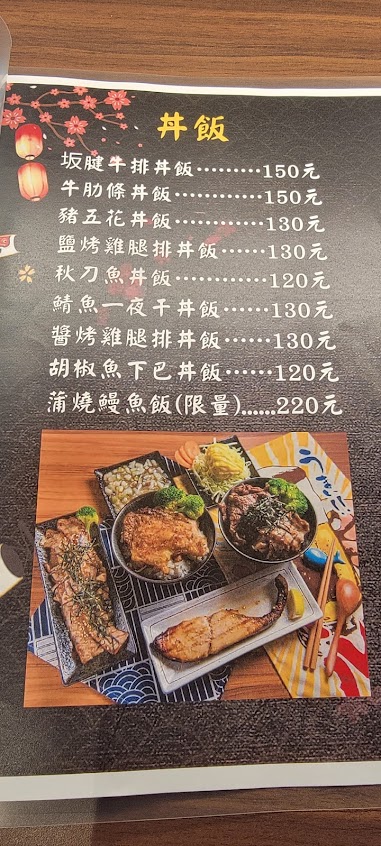 丼飯
坂腱牛排丼飯⋯⋯⋯150元
牛肋條丼飯⋯⋯⋯⋯150元
豬五花丼飯⋯⋯⋯⋯130元
鹽烤雞腿排丼飯⋯⋯130元
秋刀魚丼飯⋯⋯⋯⋯120元
鯖魚一夜干丼飯⋯⋯130元
醬烤雞腿排丼飯⋯⋯130元
胡椒魚下巴丼飯⋯⋯120元
蒲燒鰻魚飯(限量)......220元